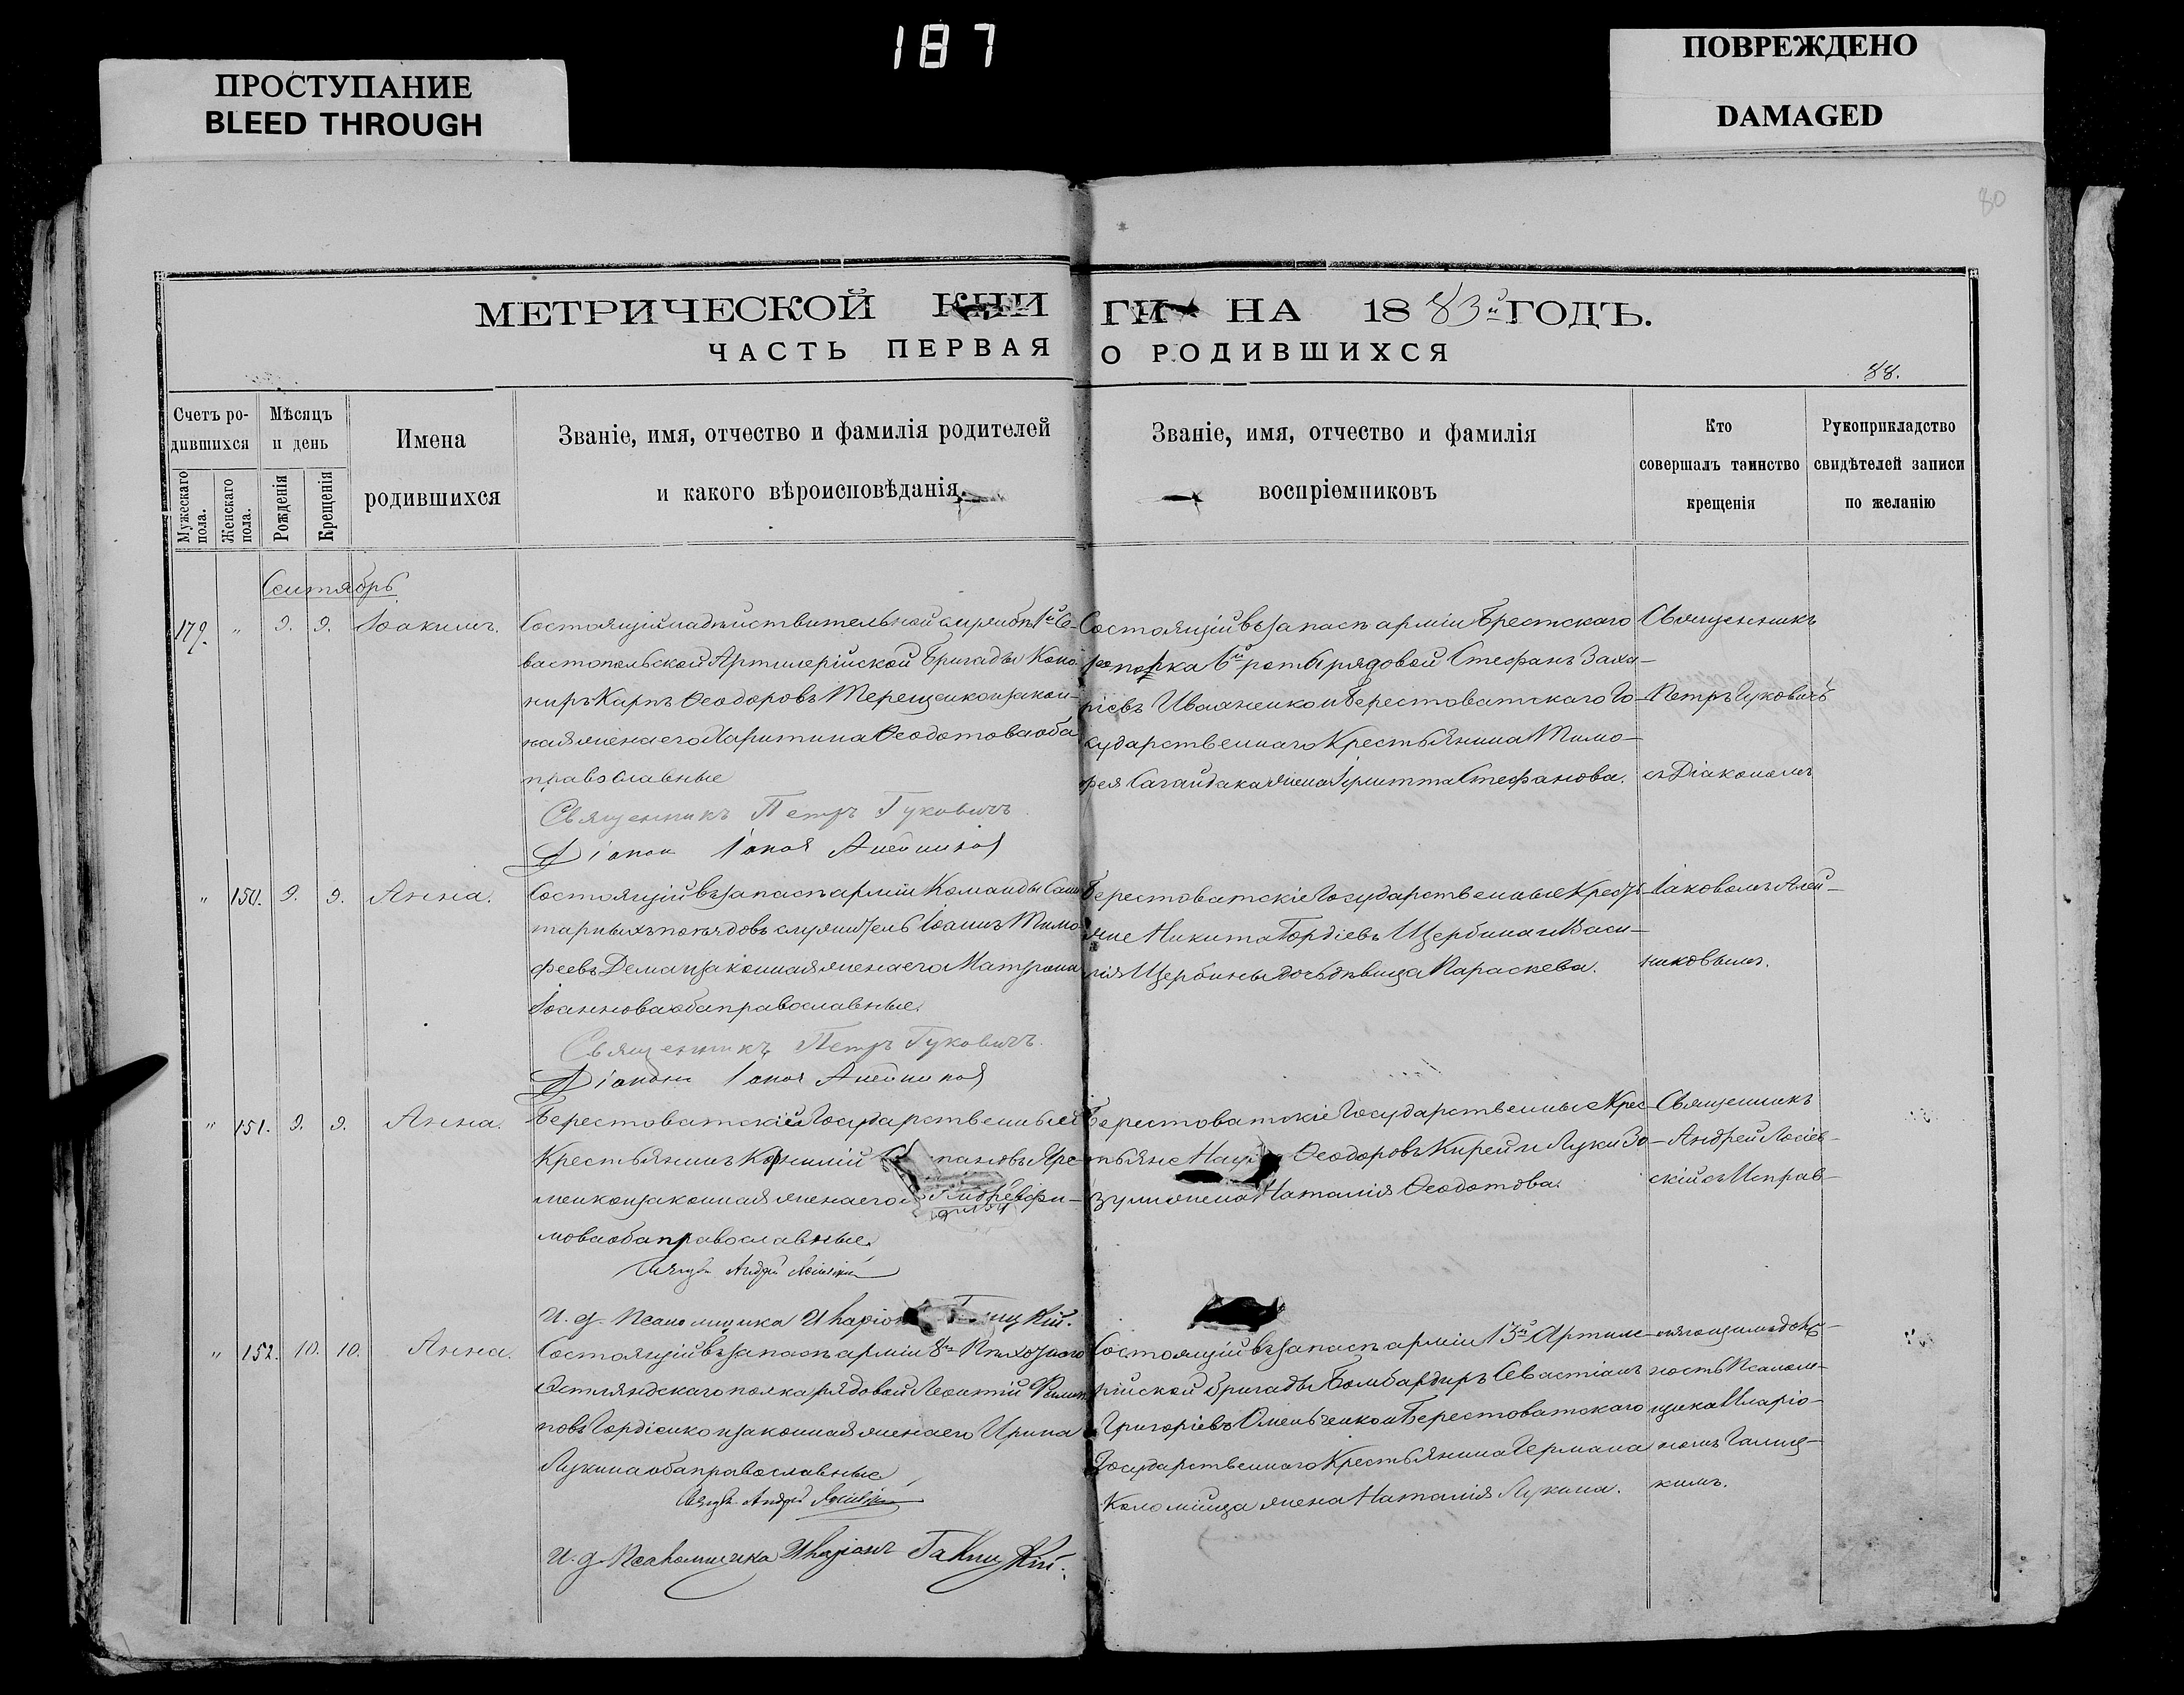 187
ПРОСТУПАНИЕ
BLEED THROUGH
ПОВРЕЖДЕНО
DAMAGED
80
МЕТРИЧЕСКОЙ КНИ
ГИ НА 1883й ГОДЪ.
ЧАСТЬ ПЕРВАЯ
О РОДИВШИХСЯ
88.
Счетъ ро-
дившихся
Мужескаго пола.
Женскаго пола.
Мѣсяцъ
и день
Рожденія
Крещенія
Имена
родившихся
Званіе, имя, отчество и фамилія родителей
и какого вѣроисповѣданія.
Званіе, имя, отчество и фамилія
воспріемниковъ
Кто
совершалъ таинство
крещенія
Рукоприкладство
свидѣтелей записи
по желанію
Сентябрь
179. " 9. 9. Іоакимъ.
Состоящій на дѣйствительной службѣ 1й Се-
вастопольской Артилерійской Бригады Кано-
ниръ Карпъ Ѳеодоровъ Терещенко и закон-
ная жена его Харитина Ѳеодотова оба
православные
Священникъ Петръ Гуковичъ
Діаконъ Іаковъ Алейниковъ
Состоящій въ запасѣ арміи Брестскаго
полка 6й роты рядовой Стефанъ Заха-
ріевъ Иваненко и Берестоватскаго Го-
сударственнаго Крестьянина Тимо-
фея Сагайдака жена Стефанова.
Священникъ
Петръ Гуковичъ
съ Діакономъ
" 150. 9. 9. Анна.
Состоящій въ запасѣ арміи Команды Сани
тарныхъ поѣздовъ служитель Іоаннъ Тимо
феевъ Дема и законная жена его Матрона
Іоаннова оба православные.
Священникъ Петръ Гуковичъ.
Діаконъ Іаковъ Алейниковъ
Берестоватскіе Государственные Кресть-
яне Никита Гордіевъ Щербина и Васи-
лія Щербины дочь дѣвица Параскева.
Іаковомъ Алей-
никовымъ.
" 151. 9. 9. Анна.
Берестоватскій Государственный
Крестьянинъ Корнилій пановъ Яре-
менко и законная жена его Евфи-
мова оба православные.
Священ. Андрей Лосіевскій
И. д. Псаломщика Иларіон цкій.
Берестоватскіе Государственные Крес-
тьяне Ѳеодоровъ Кирей и Луки Зо-
зули жена Наталія Ѳеодотова.
Священникъ
Андрей Лосіев-
скій съ Исправ-
" 152. 10. 10. Анна.
Состоящій въ запасѣ арміи 8го Пѣхотнаго
Эстляндскаго полка рядовой Леонтій Филип
повъ Гордіенко и законная жена его Ирина
Лукина оба православные
Священ. Андрей Лосіевскій
И. д. Псаломщика Иларіонъ Галицкій.
Состоящій въ запасѣ арміи 13й Артиле-
рійской бригады Бомбардиръ Севастіанъ
Григоріевъ Омельченко и Берестоватскаго
Государственнаго Крестьянина Германа
Коломійца жена Наталія Лукина.
ляющимъ долж-
ность Псалом-
щика Иларіо-
номъ Галиц-
кимъ.